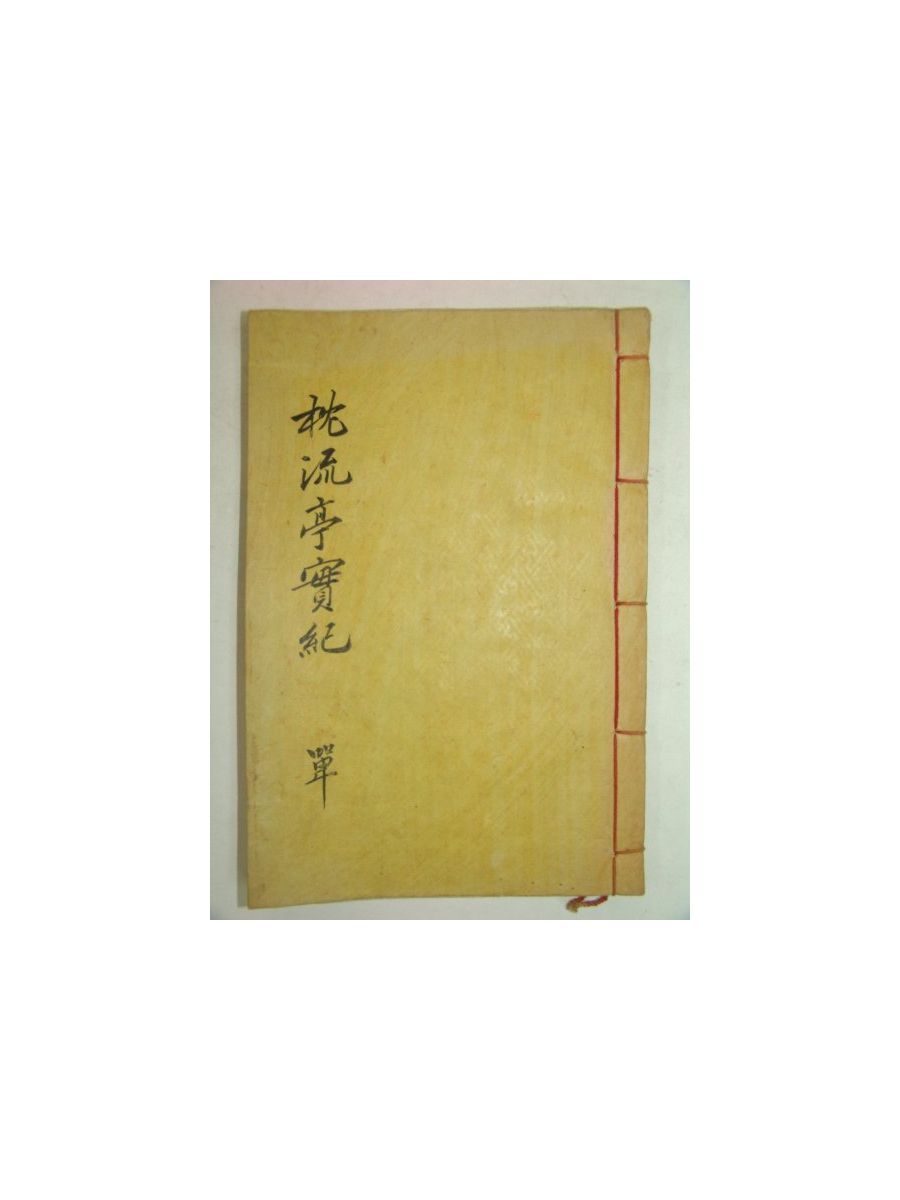 枕流亭實紀
單